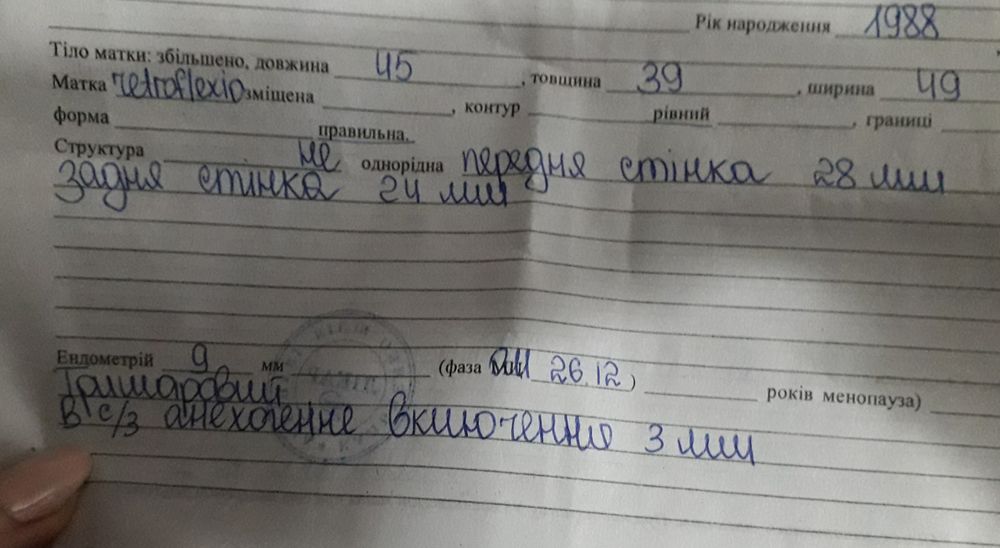 Рік народження 1988
Тіло матки: збільшено, довжина 45, товщина 39, ширина 49
Матка retroflexio зміщена, контур рівний, границі
форма правильна.
Структура не однорідна передня стінка 28 мм
задня стінка 24 мм
Ендометрій 9 мм (фаза ОМ 26.12) років менопауза)
Тришаровий
В с/з анехогенне включення 3 мм